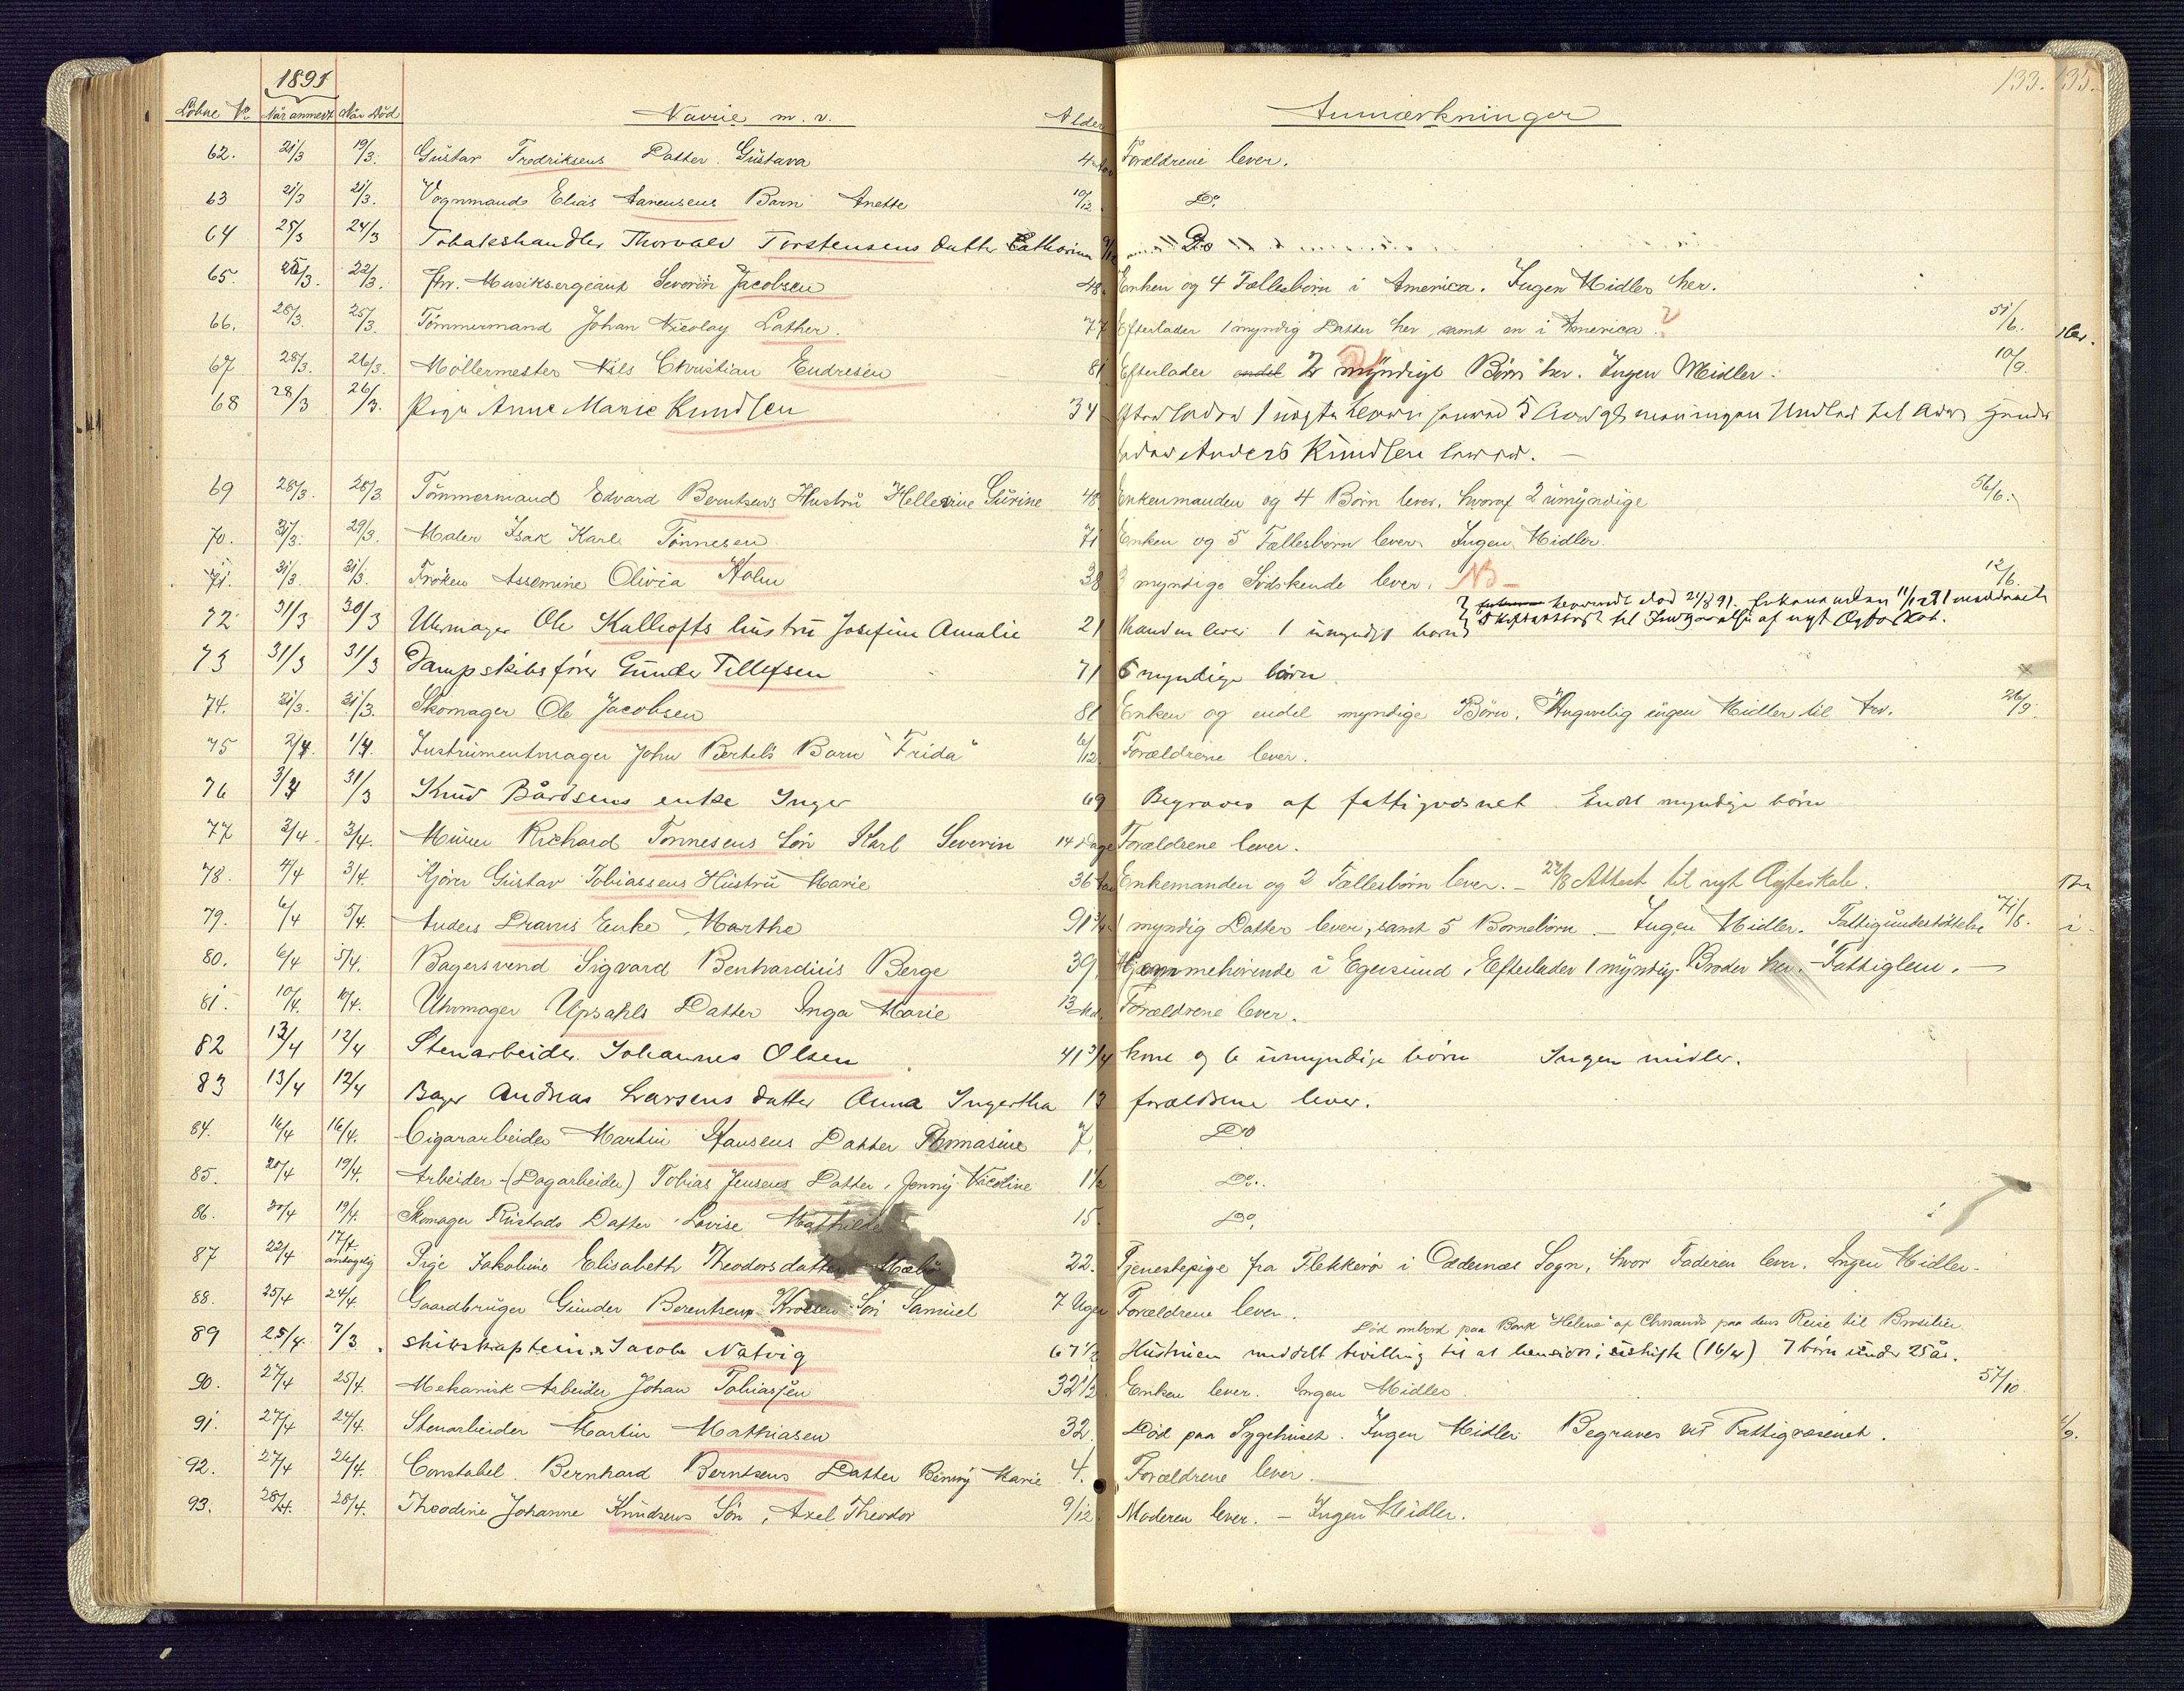 133. 135.
1891
Løbne No Når anmeldt Når Död Navne m. v. Alder Anmærkninger
62. 21/3 19/3. Gustav Fredriksens Datter Gustava 4 Forældrene lever.
63 21/3 21/3. Vognmand Elias Aanensens Barn Anette 10/12 Do.
64 25/3 24/3 Tobakshandler Thorvald Torstensens datter Cathorina 9/12 " Do "
65. 25/3. 22/3. fhv. Musiksergeant Severin Jacobsen 48. Enken og 4 Fællesbörn i America. Ingen Midler her.
66. 28/3. 25/3. Tömmermand Johan Nicolay Lather. 77 Efterlader 1 myndig Datter her, samt en i America. ? 51/6.
67 28/3. 26/3. Möllermester Nils Christian Endresen 81 Efterlader endel 2 myndige Börn her. Ingen Midler. 10/9.
68 28/3 26/3. Pige Anne Marie Knudsen 34 1 5
Anders Knudsen lever. —
69 28/3. 28/3 Tömmermand Edvard Berntsens Hustru Hellevine Gurine 48. Enkemanden og 4 Börn lever, hvoraf 2 umyndige 56/6.
70. 31/3. 29/3. Maler Isak Karl Tönnesen 71 Enken og 5 Fællesbörn lever. Ingen Midler.
71. 31/3. 31/3. Fröken Assemine Olivia Holm 38 3 myndige Södskende lever. NB — 12/6.
72 31/3 30/3 Uhrmager Ole Kallhofts hustru Josefine Amalie 21 Manden lever 1 umyndigt barn död 21/8 91. Enkemanden 11/12 91 meddelt
Skifteattest til Indgaaelse af nyt Ægteskab.
73 31/3 31/3 Dampskibsförer Gunder Tellefsen 71 6 myndige börn
74. 31/3. 31/3. Skomager Ole Jacobsen 81 Enken og endel myndige Börn. Angivelig ingen Midler til Arv. 26/9.
75 2/4. 1/4. Instrumentmager John Bertels Barn "Frida" 6/12 Forældrene lever.
76 3/4 31/3 Knud Bårdsens enke Inger 69 Begraves af fattigvæsnet. Endel myndige börn
77 3/4. 3/4. Murer Richard Tönnesens Sön Karl Severin 14 Dage Forældrene lever.
78. 4/4 3/4. Kjörer Gustav Tobiassens Hustru Marie 36 Enkemanden og 2 Fællesbörn lever. — 27/8 Attest til nyt Ægteskab.
79. 6/4 5/4. Anders Dravis Enke, Marthe 91 3/4 1 myndig Datter lever, samt 5 Börnebörn. — Ingen Midler. Fattigunderstöttelse 71/8.
80. 6/4 5/4. Bagersvend Sigvard Benhardius Berge 39. Hjemmehörende i Egersund, Efterlader 1 myndig Broder her. — Fattiglem. —
81. 10/4. 10/4. Uhrmager Upsahls Datter Inga Marie 13 Md. Forældrene lever.
82 13/4 12/4 Stenarbeider Johannes Olsen 41 3/4 kone og 6 umyndige börn Ingen midler.
83 13/4 12/4 Bager Andreas Larsens datter Anna Ingertha 13 forældrene lever.
84. 16/4 16/4. Cigararbeider Martin Hansens Datter Thomasine 7. Do
85. 20/4 19/4. Arbeider (Dagarbeider) Tobias Jensens Datter, Jenny Nicoline 1 1/2 Do.
86. 20/4 19/4. Skomager Rustads Datter Lovise Mathilde 15. Do.
87 22/4 17/4. antagelig Pige Jakobine Elisabeth Theodorsdatter Mæbö 22. Tjenestepige fra Flekkerö i Oddernæs Sogn, hvor Faderen lever. Ingen Midler.
88. 25/4 24/4 Gaardbruger Gunder Berentsens Sön Samuel 7 Uger Forældrene lever.
Död ombord paa Bark "Helene" af Chrsand paa dens Reise til Brasilien
89 25/4. 7/3. skibskaptein Jacob Natvig 67 1/2 Hustruen meddelt bevilling til at hensidde i uskifte (16/4) 7 börn under 25 år.
90. 27/4 25/4. Mekanisk Arbeider Johan Tobiassen 32 1/2. Enken lever. Ingen Midler. 57/10
91. 27/4 24/4. Stenarbeider Martin Mathiasen 32. Död paa Sygehuset. Ingen Midler Begraves ved Fattigvæsenet.
92. 27/4 26/4. Constabel Bernhard Berntsens Datter Benny Marie 4. Forældrene lever.
93. 28/4. 28/4. Theodine Johanne Knudsens Sön, Axel Theodor 9/12. Moderen lever. — Ingen Midler.